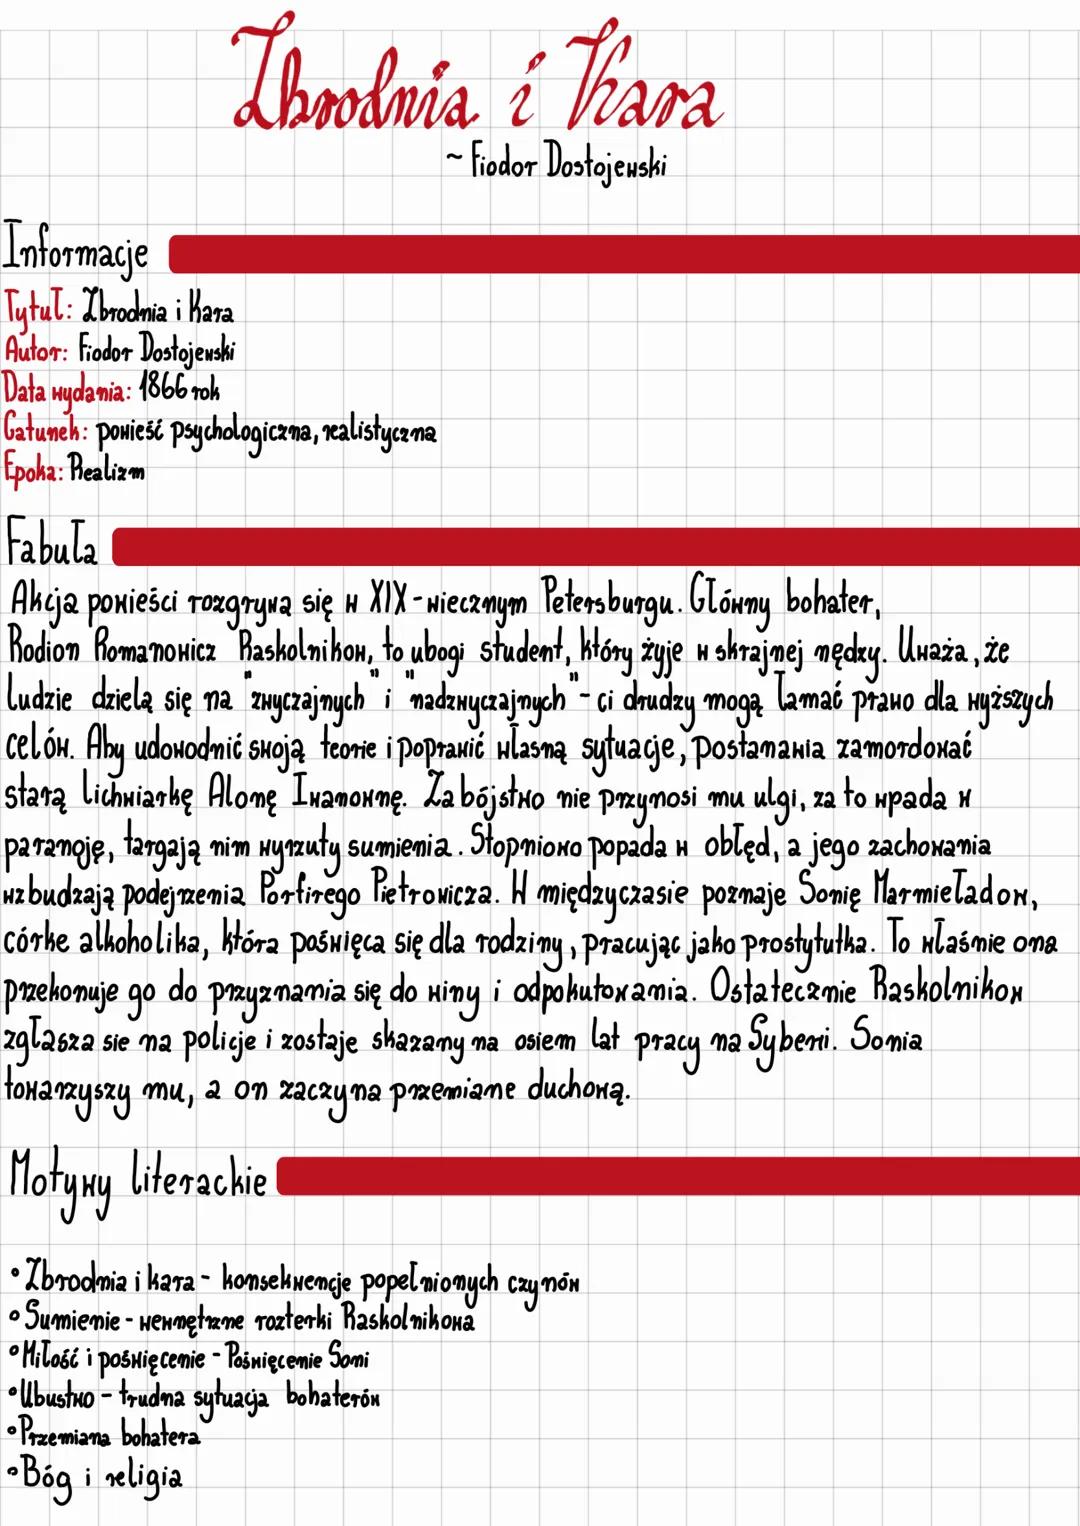 Zbrodnia i Kara
~ Fiodor Dostojewski
Informacje
Tytuł: Zbrodnia i Kara
Autor: Fiodor Dostojewski
Data wydania: 1866 rok
Gatunek: powieść psychologiczna, realistyczna
Epoka: Realizm
Fabuła
Akcja powieści rozgrywa się w XIX-wiecznym Petersburgu. Główny bohater,
Rodion Romanowicz Raskolnikow, to ubogi student, który żyje w skrajnej nędzy. Uważa, że
ludzie dzielą się na "zwyczajnych" i "nadzwyczajnych" - ci drudzy mogą łamać prawo dla wyższych
celów. Aby udowodnić swoją teorie i poprawić własną sytuacje, postanawia zamordować
starą lichwiarkę Alonę Iwanownę. Zabójstwo nie przynosi mu ulgi, za to wpada w
paranoję, targają nim wyrzuty sumienia. Stopniowo popada w obłęd, a jego zachowania
wzbudzają podejrzenia Porfirego Pietrowicza. W międzyczasie poznaje Sonię Marmieładow,
córke alkoholika, która poświęca się dla rodziny, pracując jako prostytutka. To właśnie ona
przekonuje go do przyznania się do winy i odpokutowania. Ostatecznie Raskolnikow
zgłasza sie na policje i zostaje skazany na osiem lat pracy na Syberii. Sonia
towarzyszy mu, a on zaczyna przemiane duchową.
Motywy literackie
• Zbrodnia i kara - konsekwencje popełnionych czynów
• Sumienie - wewnętrzne rozterki Raskolnikowa
• Miłość i poświęcenie - Poświęcenie Soni
• Ubustwo - trudna sytuacja bohaterów
• Przemiana bohatera
• Bóg i religia